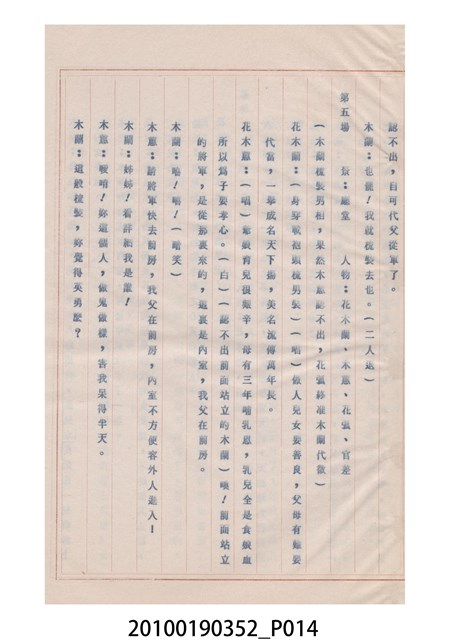 認不出，自可代父從軍了。
木蘭：也罷！我就梳裝去也。（二人退）
第五場　景：廳堂　人物：花木蘭、木蕙、花弧、官差
（木蘭梳裝男相，果然木蕙認不出，花弧移准木蘭代歡）
花木蘭：（身穿戰袍頭梳男裝）（唱）做人兒女要善良，父母有難要
代當，一舉成名天下揚，美名流傳萬年長。
花木蕙：（唱）爺娘育兒很艱辛，母有三年哺乳恩，乳兒全是食娘血
所以為子要孝心。（白）（認不出前面站立的木蘭）噢！前面站立
的將軍，是從那裏來的，這裏是內室，我父在前房。
木蘭：嗯！嗯！（暗笑）
木蕙：請將軍快去前房，我父在前房，內室不方便容外人進入！
木蘭：姊姊！看詳細我是誰！
木蕙：噯唷！妳這個人，做鬼做樣，害我呆得半天。
木蘭：這般梳裝，妳覺得英勇麽？
20100190352_P014